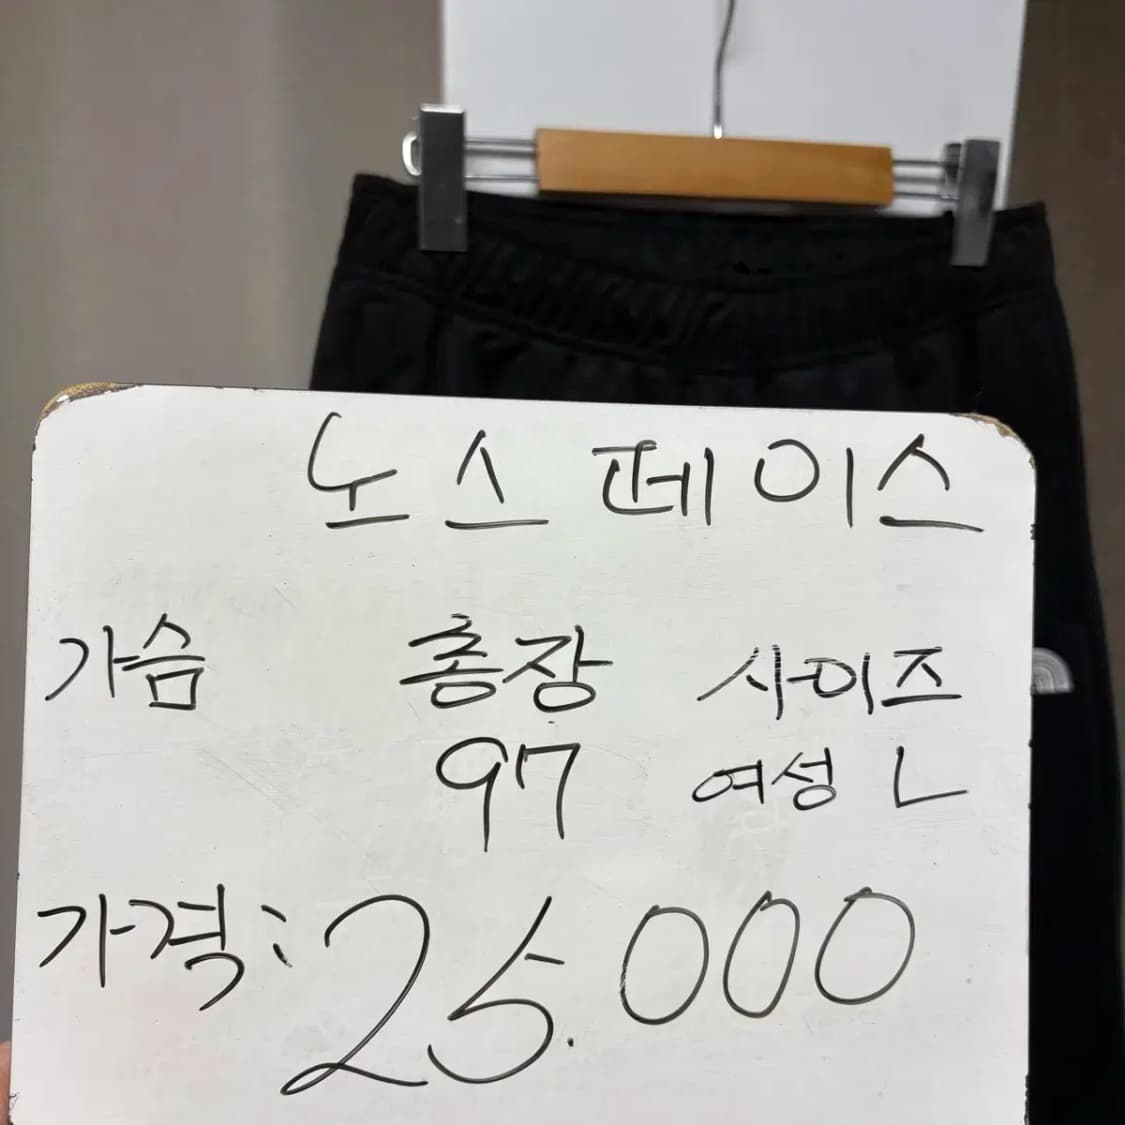 노스페이스
가슴 총장 사이즈
97 여성 L
가격: 25.000